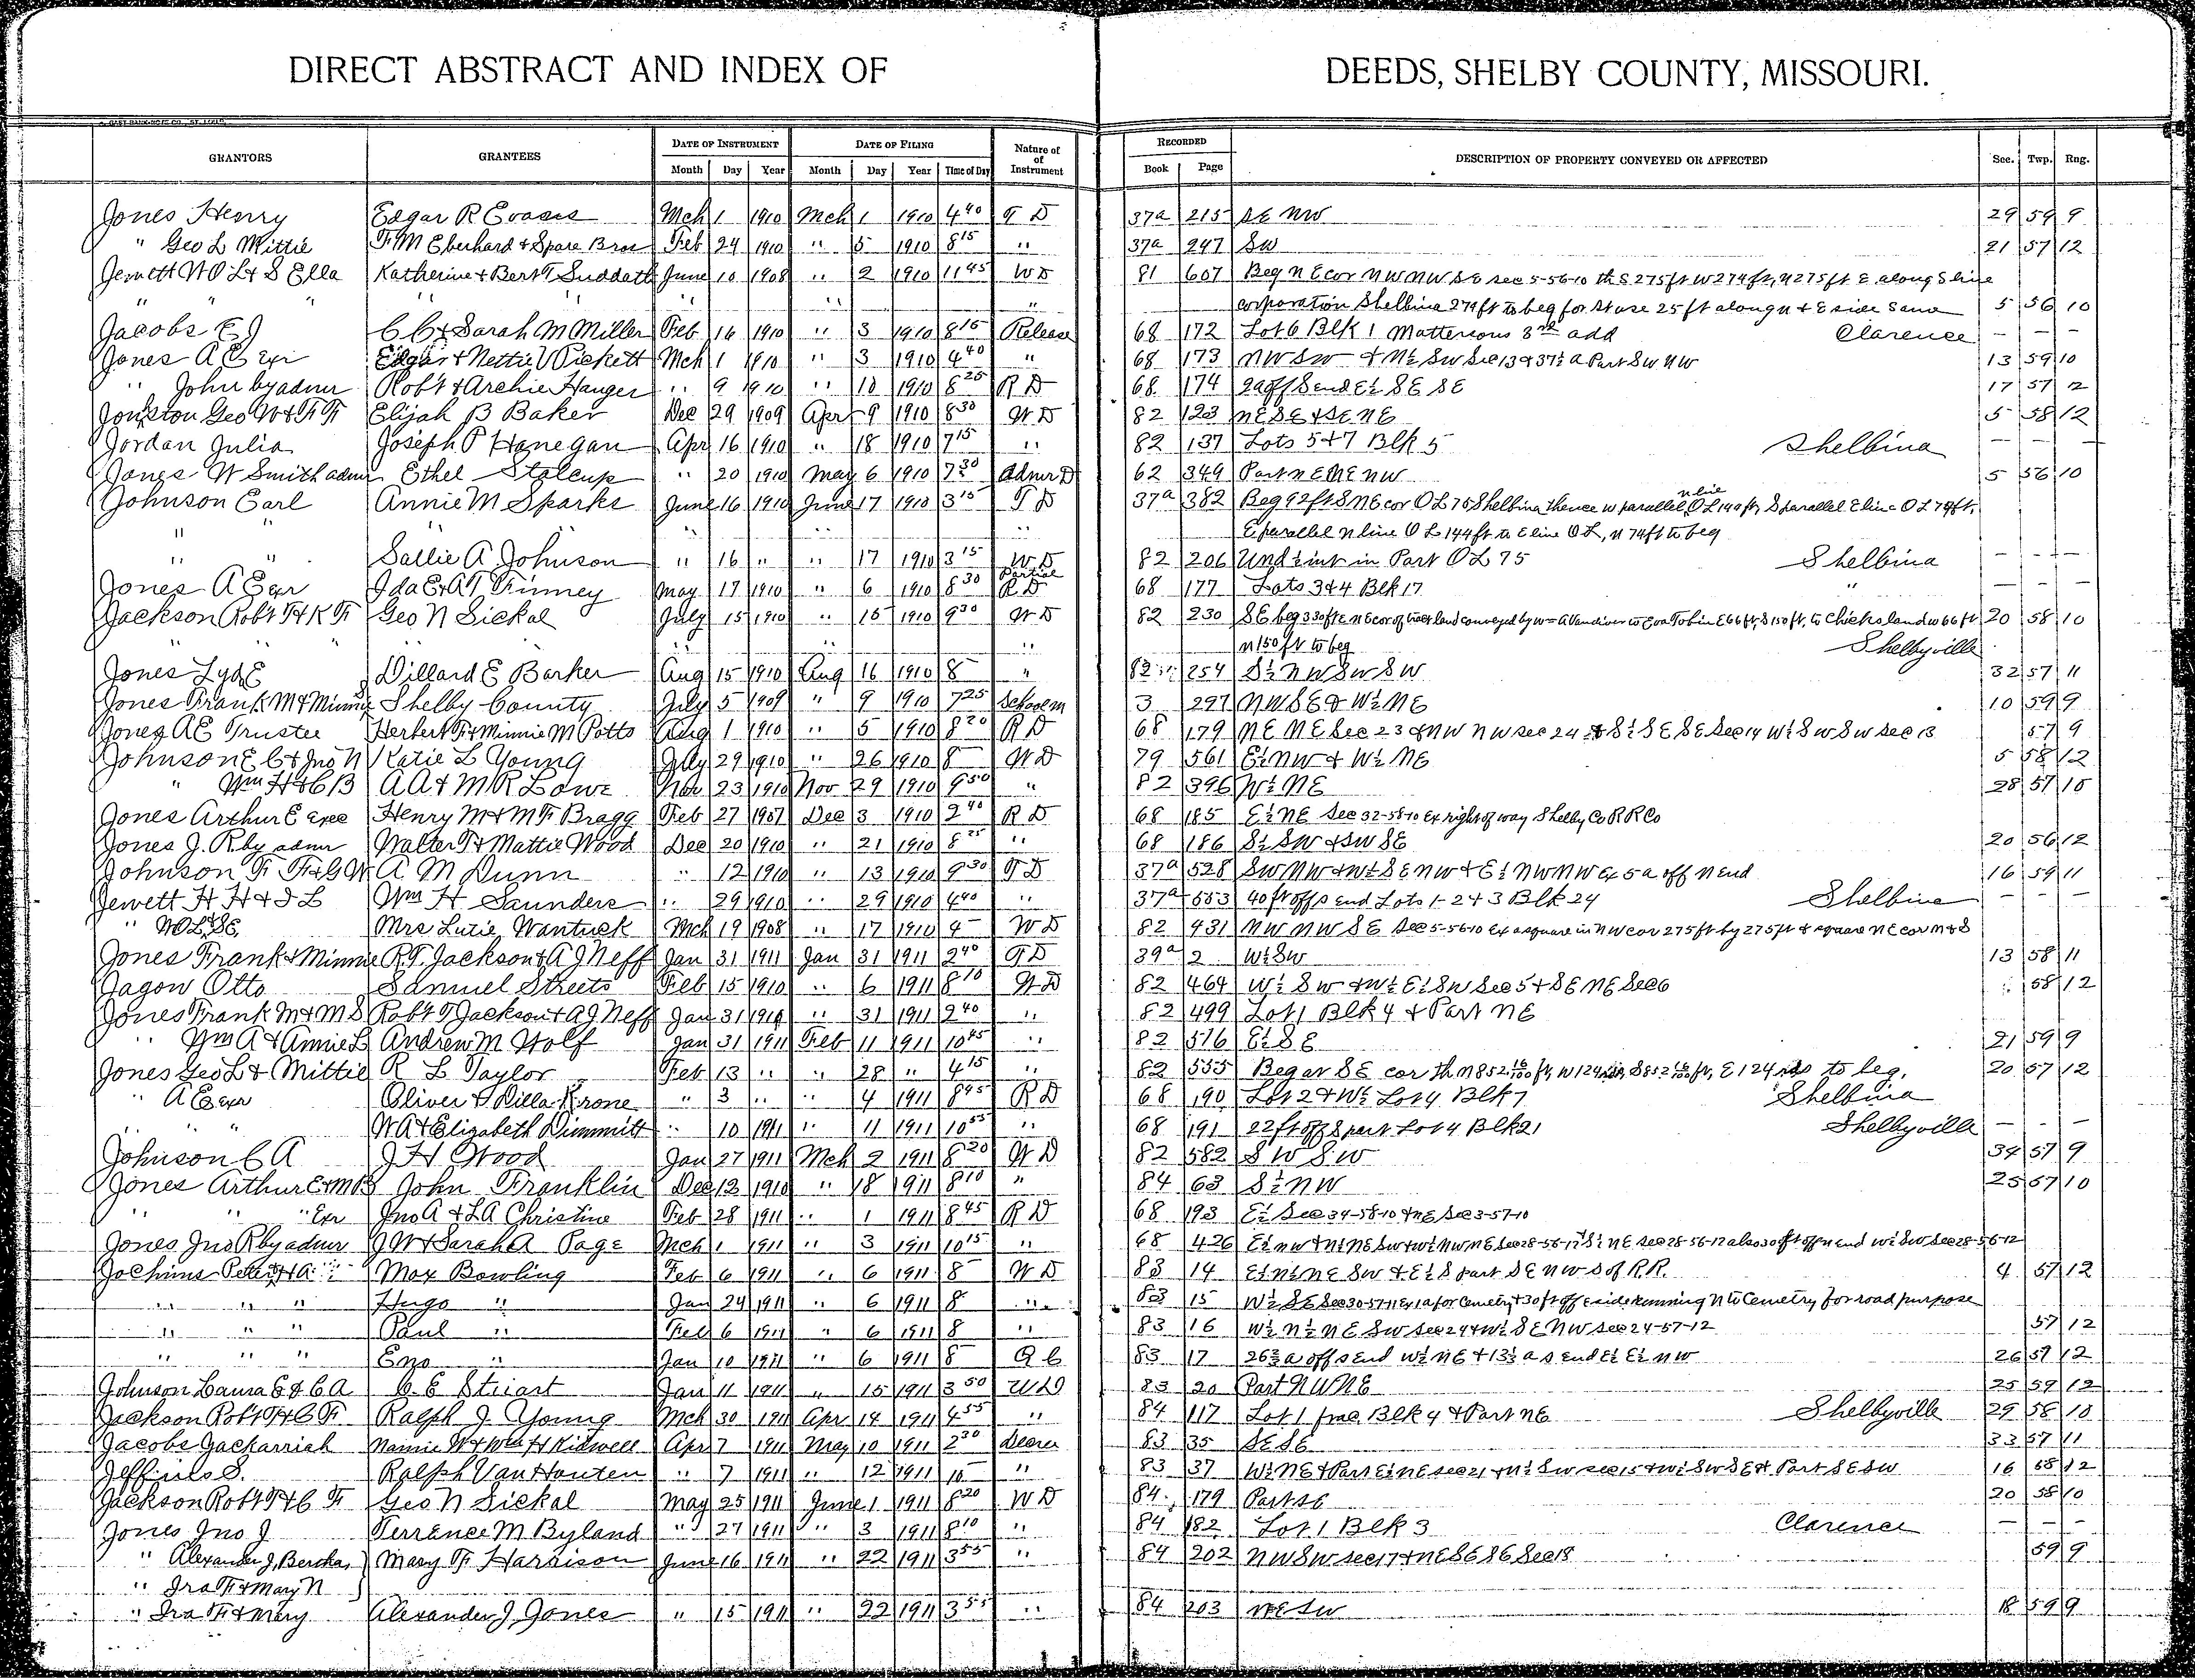 DIRECT ABSTRACT AND INDEX OF DEEDS, SHELBY COUNTY, MISSOURI.
GRANTORS GRANTEES DATE OF INSTRUMENT DATE OF FILING Nature of Instrument RECORDED DESCRIPTION OF PROPERTY CONVEYED OR AFFECTED Sec. Twp. Rng.
Month Day Year Month Day Year Time of Day Book Page
Jones Henry Edgar R Evans Mch 1 1910 Mch 1 1910 4 40 T D 37a 215 SE NW 29 59 9
" Geo L Mittie F M Eberhard & Spare Bros Feb 24 1910 " 5 1910 8 15 " 37a 247 SW 21 57 12
Jewett W O L & S Ella Katherine & Bert T Suddath June 10 1908 " 2 1910 11 45 W D 81 607 Beg N E cor N W N W S E sec 5-56-10 th S 275 ft W 274 ft, N 275 ft E along S line
" " " " " " " corporation Shelbina 274 ft to beg for St use 25 ft along N & E side same 5 56 10
Jacobs E J C C & Sarah M Miller Feb 16 1910 " 3 1910 8 15 Release 68 172 Lot 6 Blk 1 3rd add Clarence — —
Jones A E exr Edgar & Nettie V Pickett Mch 1 1910 " 3 1910 4 40 " 68 173 NW SW & N½ SW Sec 13 & 37½ a Part SW NW 13 59 10
" John by admr Robt & Archie Hanger " 9 1910 " 10 1910 8 25 R D 68 174 2a off S end E½ SE SE 17 57 12
Johnston Geo W & F F Elijah B Baker Dec 29 1909 Apr 9 1910 8 30 W D 82 123 NE SE & SE NE 5 58 12
Jordan Julia Joseph P Hanegan Apr 16 1910 " 18 1910 7 15 " 82 137 Lots 5 & 7 Blk 5 Shelbina — — —
Jones W Smith admr Ethel Stalcup " 20 1910 May 6 1910 7 30 Admr D 62 349 Part NE NE NW 5 56 10
Johnson Earl Annie M Sparks June 16 1910 June 17 1910 3 15 T D 37a 382 Beg 92 ft S NE cor O L 75 Shelbina thence W parallel n line O L 144 ft, S parallel E line O L 74 ft,
" " " " E parallel N line O L 144 ft to E line O L, N 74 ft to beg
" " Sallie A Johnson " 16 " " 17 1910 3 15 W D 82 206 Und ½ int in Part O L 75 Shelbina — — —
Jones A E exr Ida E & A T Finney May 17 1910 " 6 1910 8 30 Partial R D 68 177 Lots 3 & 4 Blk 17 " — — —
Jackson Robt T & K F Geo N Sickal July 15 1910 " 15 1910 9 30 W D 82 230 SE beg 330 ft E NE cor of tract land conveyed by Wm A Vandiver to Eva Tobin E 66 ft, S 150 ft, to Chicks land W 66 ft 20 58 10
" " " " N 150 ft to beg Shelbyville
Jones Lyda E Willard E Barker Aug 15 1910 Aug 16 1910 8 " 82 254 S½ NW SW SW 32 57 11
Jones Frank M & Minnie Shelby County July 5 1909 " 9 1910 7 25 School M 3 297 NW SE & W½ NE 10 59 9
Jones A E Trustee Herbert F & Minnie M Potts Aug 1 1910 " 5 1910 8 20 R D 68 179 NE NE Sec 23 & NW NW sec 24 & S½ SE SE Sec 14 W½ SW SW Sec 13 57 9
Johnson E C & Jno N Katie L Young July 29 1910 " 26 1910 8 W D 79 561 E½ NW & W½ NE 5 58 12
" Wm H & C B A A & M R Lowe Nov 23 1910 Nov 29 1910 9 50 " 82 396 W½ NE 28 57 10
Jones Arthur E exec Henry M & M F Bragg Feb 27 1907 Dec 3 1910 2 40 R D 68 185 E½ NE Sec 32-58-10 Ex right of way Shelby Co R R Co
Jones J. R by admr Walter T & Mattie Wood Dec 20 1910 " 21 1910 8 25 " 68 186 S½ SW & SW SE 20 56 12
Johnson F F & G W A M Dunn " 12 1910 " 13 1910 9 30 T D 37a 528 SW NW & W½ SE NW & E½ NW NW Ex 5 a off N end 16 59 11
Jewett H H & I L Wm H Saunders " 29 1910 " 29 1910 4 40 " 37a 553 40 ft off S end Lots 1-2 & 3 Blk 24 Shelbina — — —
" W O L & S E Mrs Lutie Wantuck Mch 19 1908 " 17 1910 4 W D 82 431 NW NW SE Sec 5-56-10 Ex a square in NW cor 275 ft by 275 ft & square NE cor
Jones Frank & Minnie R. T. Jackson & A J Neff Jan 31 1911 Jan 31 1911 2 40 T D 39a 2 W½ SW 13 58 11
Jagow Otto Samuel Streets Feb 15 1910 " 6 1911 8 10 W D 82 464 W½ SW & W½ E½ SW Sec 5 & SE NE Sec 6 58 12
Jones Frank M & M S Robt T Jackson & A J Neff Jan 31 1910 " 31 1911 2 40 " 82 499 Lot 1 Blk 4 & Part NE
" Wm A & Annie L Andrew M Wolf Jan 31 1911 Feb 11 1911 10 45 " 82 516 E½ SE 21 59 9
Jones Geo L & Mittie R L Taylor Feb 13 " " 28 " 4 15 " 82 555 Beg at SE cor th N 852 ft, W 124 rds, S 852 ft, E 124 rds to beg. 20 57 12
" A E exr Oliver & Willa Krone " 3 " " 4 1911 8 45 R D 68 190 Lot 2 & W½ Lot 4 Blk 7 Shelbina
" " W A & Elizabeth Dimmitt " 10 1911 " 11 1911 10 55 " 68 191 22 ft off S part Lot 4 Blk 21 Shelbyville — —
Johnson C A J H Wood Jan 27 1911 Mch 2 1911 8 20 W D 82 582 SW SW 34 57 9
Jones Arthur E & M B John Franklin Dec 12 1910 " 18 1911 8 10 " 84 63 S½ NW 25 57 10
" " " Exr Jno A & L A Christine Feb 28 1911 " 1 1911 8 45 R D 68 193 E½ Sec 34-58-10 & NE Sec 3-57-10
Jones Jno R by admr J W & Sarah A Page Mch 1 1911 " 3 1911 10 15 " 68 426 E½ NW & N½ NE SW & W½ NW NE Sec 28-56-12 S½ NE sec 28 56-12 also 30 ft off N end W½ SW Sec 28-56-12
Jochims Peter H A Max Bowling Feb 6 1911 " 6 1911 8 W D 83 14 E½ N½ NE SW & E½ S part SE NW S of R.R. 4 57 12
" " " Hugo " Jan 24 1911 " 6 1911 8 " 83 15 W½ SE Sec 30-57-11 Ex 1a for Cemetry & 30 ft off E side running N to Cemetry for road purpose
" " " Paul " Feb 6 1911 " 6 1911 8 " 83 16 W½ N½ NE SW Sec 24 & W½ SE NW Sec 24-57-12 57 12
" " " Eno " Jan 10 1911 " 6 1911 8 Q C 83 17 26⅔ a off S end W½ NE & 13⅓ a S end E½ E½ NW 26 57 12
Johnson Laura E & C A C. E Stuart Jan 11 1911 " 15 1911 3 50 W D 83 20 Part NW NE 25 59 12
Jackson Robt T & C F Ralph J Young Mch 30 1911 Apr 14 1911 4 55 " 84 117 Lot 1 frac Blk 4 & Part NE Shelbyville 29 58 10
Jacobs Zachariah Nannie W & Wm H Kidwell Apr 7 1911 May 10 1911 2 30 Decree 83 35 SE SE 33 57 11
Jeffries S. Ralph Van Houten " 7 1911 " 12 1911 10 " 83 37 W½ NE & Part E½ NE sec 21 & N½ SW sec 15 & W½ SW SE & Part SE SW 16 58 12
Jackson Robt T & C F Geo N Sickal May 25 1911 June 1 1911 8 20 W D 84 179 Part SE 20 58 10
Jones Jno J Terrence M Byland " 27 1911 " 3 1911 8 10 " 84 182 Lot 1 Blk 3 Clarence — — —
" Alexander J, Bertha, Mary F Harrison June 16 1911 " 22 1911 3 55 " 84 202 NW SW sec 17 & NE SE SE Sec 18 59 9
" Ira F & Mary N
" Ira F & Mary Alexander J Jones " 15 1911 " 22 1911 3 55 " 84 203 NE SW 18 59 9